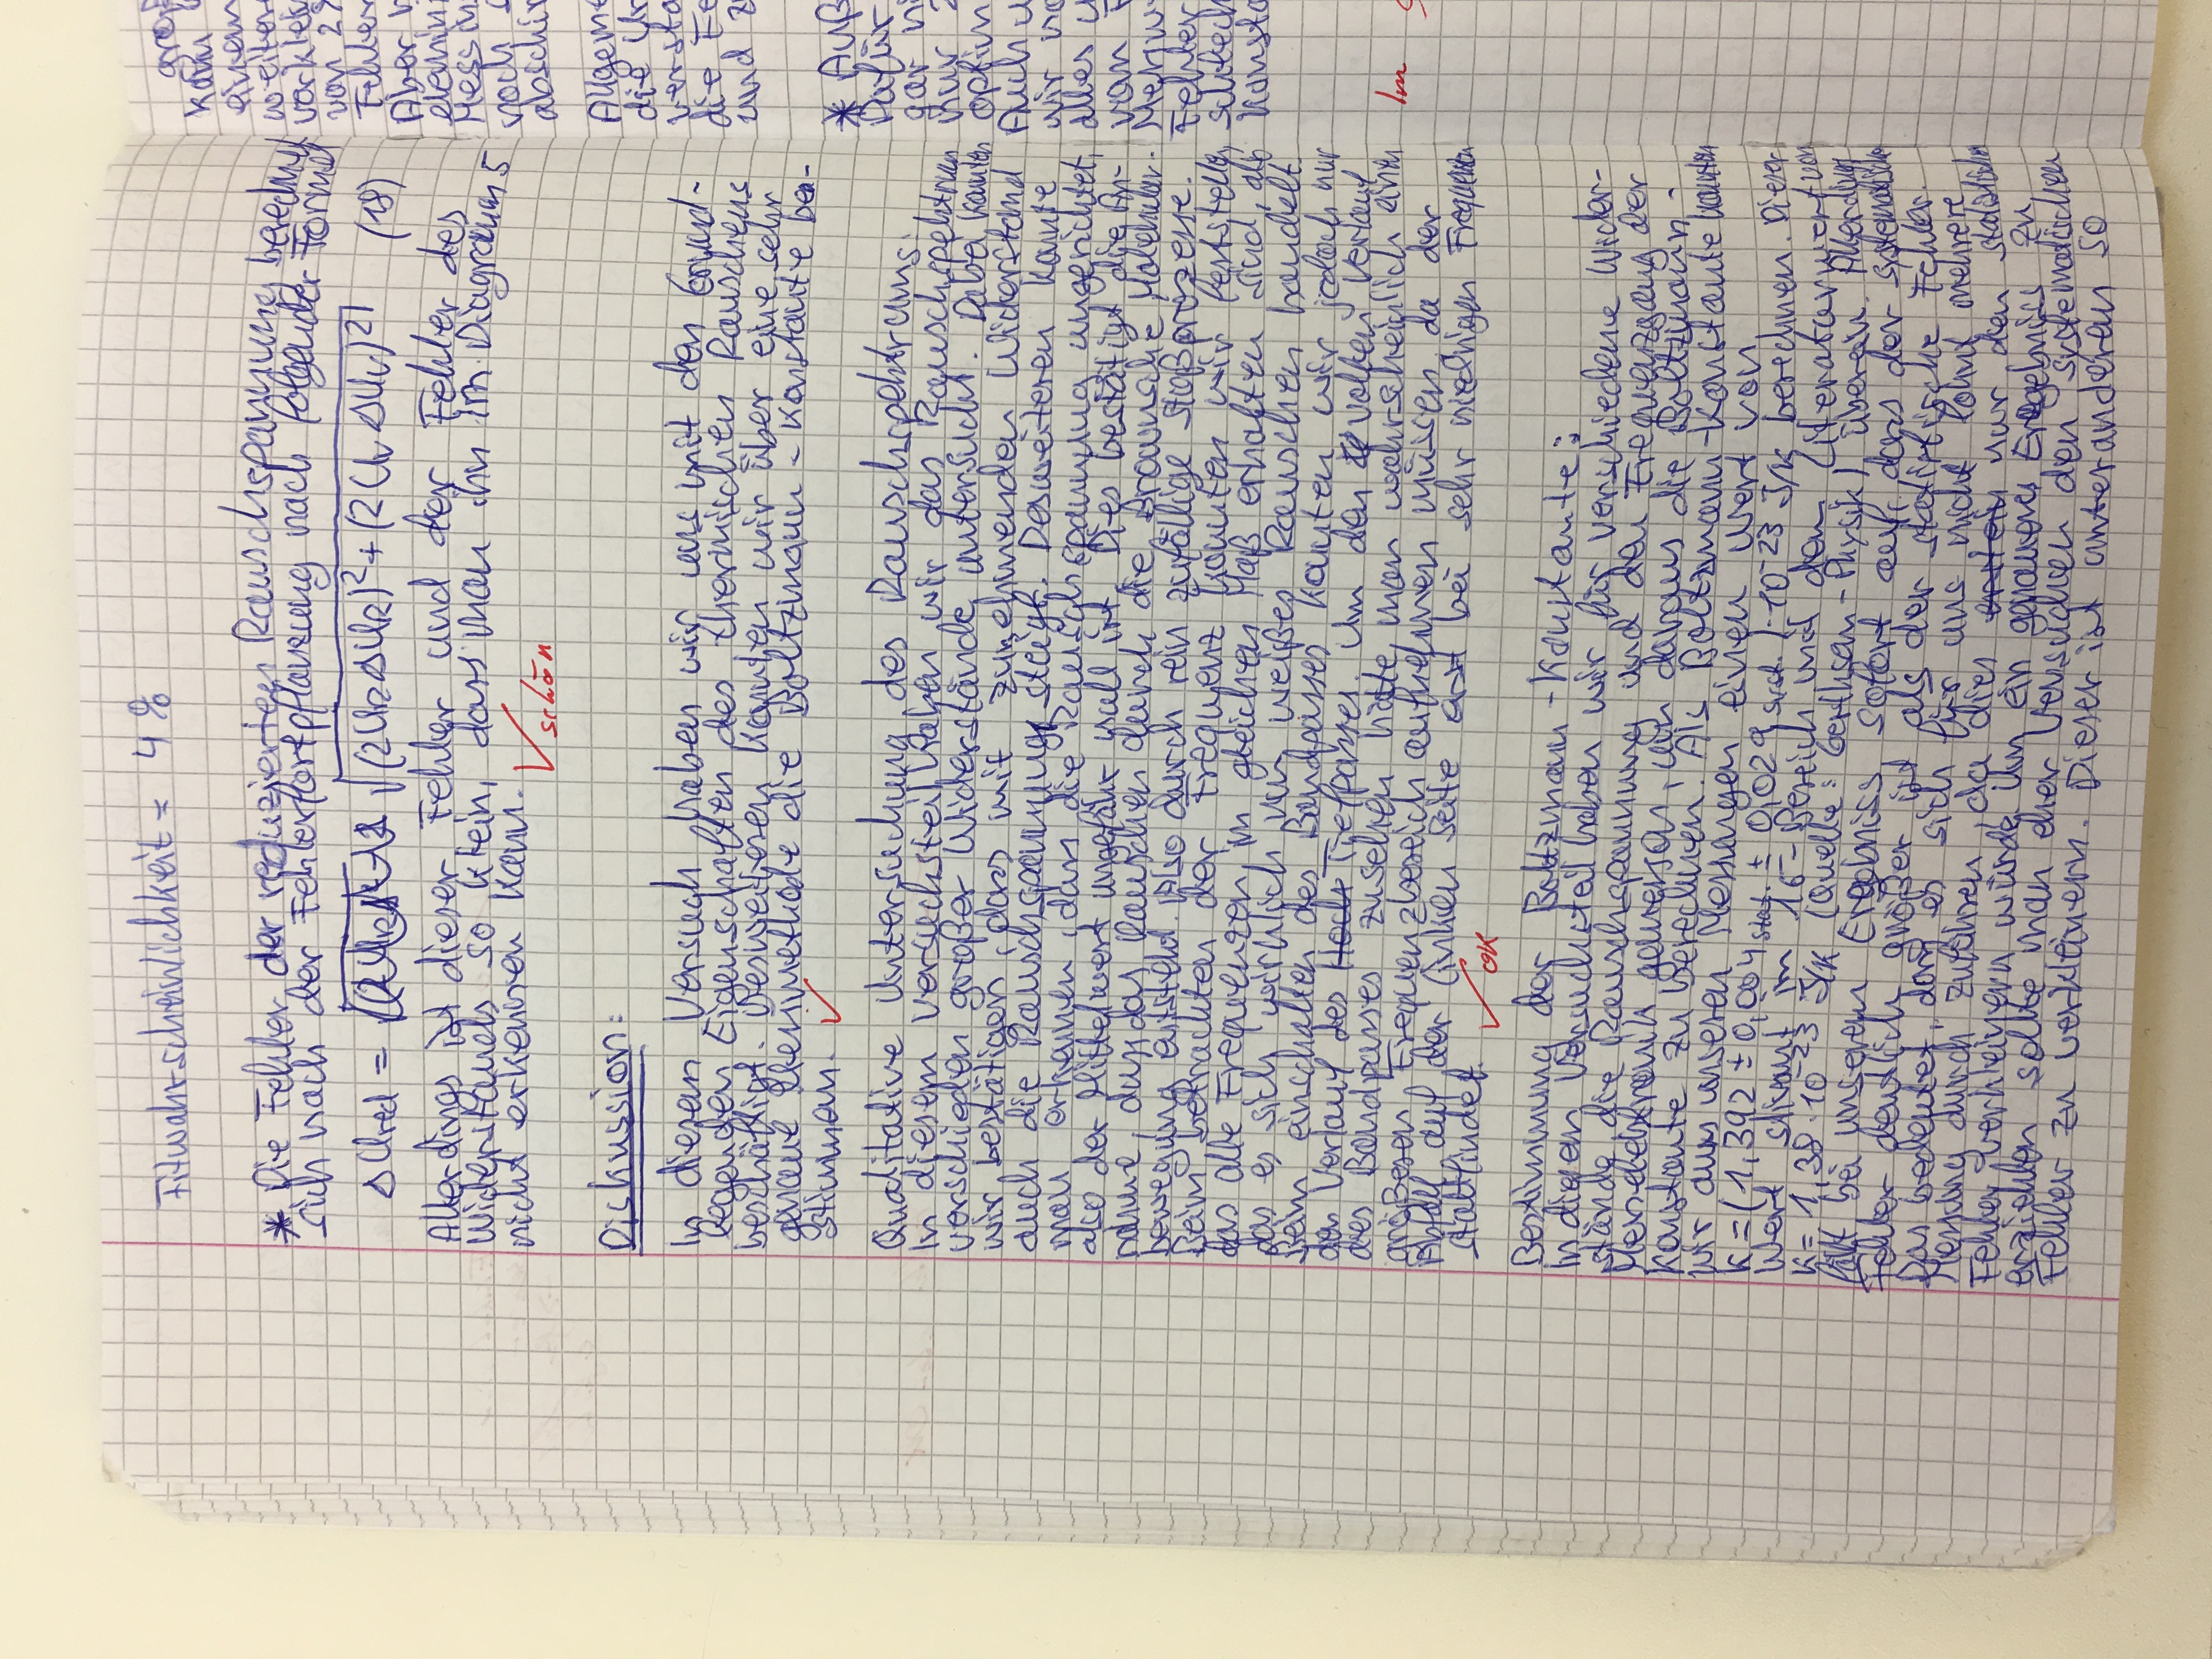 Fitwahrscheinlichkeit = 4 %
* Die Fehler der reduzierten Rauschspannung berechnet
sich nach der Fehlerfortpflanzung nach folgender Formel
ΔUred = √((2U_RΔU_R)² + (2U_VΔU_V)²) (18)
Allerdings ist dieser Fehler und der Fehler des
Widerstands so klein, dass man ihn im Diagramm 5
nicht erkennen kann.
✓ schön
Diskussion:
In diesem Versuch haben wir uns mit den Grund-
legenden Eigenschaften des thermischen Rauschens
beschäftigt. Desweiteren konnten wir über eine sehr
genaue Messmethode die Boltzmann-Konstante be-
stimmen. ✓
Qualitative Untersuchung des Rauschspektrums:
In diesem Versuchsteil haben wir das Rauschspektrum
verschieden großer Widerstände untersucht. Dabei konnten
wir bestätigen, dass mit zunehmenden Widerstand
auch die Rauschspannung steigt. Desweiteren konnte
man erkennen, dass die Rauschspannung ungerichtet,
also der Mittelwert ungefähr null ist. Dies bestätigt die An-
nahme, dass das Rauschen durch die Brownsche Molekular-
bewegung entsteht. Also durch rein zufällige Stoßprozesse.
Beim betrachten der Frequenz konnten wir feststellen,
das alle Frequenzen im gleichen Maß erhalten sind, also
das es sich wirklich um weißes Rauschen handelt.
Beim einschalten des Bandpasses konnten wir jedoch nur
den Verlauf des Hoch Tiefpasses. Um den vollen Verlauf
des Bandpasses zusehen hätte man wahrscheinlich einen
größeren Frequenzbereich aufnehmen müssen, da der
Abfall auf der linken Seite erst bei sehr niedrigen Frequenzen
stattfindet. ✓ ok
Bestimmung der Boltzmann-Konstante:
In diesem Versuchsteil haben wir für verschiedene Wider-
stände die Rauschspannung und den Frequenzgang der
Messelektronik gemessen, um daraus die Boltzmann-
Konstante zu berechnen. Als Boltzmann-Konstante konnten
wir aus unseren Messungen einen Wert von
k = (1,392 ± 0,004 stat. ± 0,029 syst.) · 10⁻²³ J/K berechnen. Dieser
Wert stimmt im 1σ-Bereich mit dem Literaturwert von
k = 1,38 · 10⁻²³ J/K (Quelle: Gerthsen-Physik) überein. Allerdings
fällt bei unserem Ergebniss sofort auf, dass der systematische
Fehler deutlich größer ist als der statistische Fehler.
Das bedeutet, dass es sich für uns nicht lohnt mehrere
Messung durch zuführen, da dies nur den statistischen
Fehler verkleinern würde. Um ein genaueres Ergebniss zu
erziehlen sollte man eher Versuchen den systematischen
Fehler zu verkleinern. Dieser ist unteranderem so
kann
einem
von
Fehler
Aber
noch
und
* Auß
Dafür
nur
Auch
von
Fehler
Im